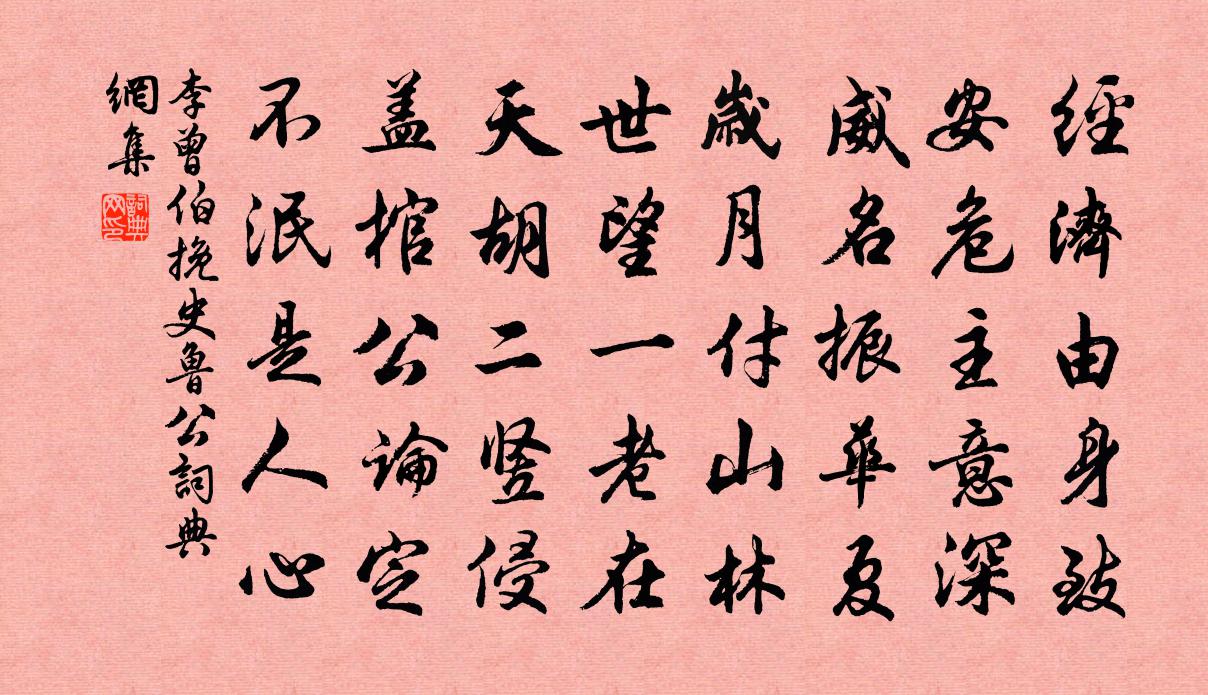 經濟由身致
安危主意深
威名振華夏
歲月付山林
世望一老在
天胡二豎侵
盖棺公論定
不泯是人心
李曾伯挽史魯公詞典
網集
詞典
网印